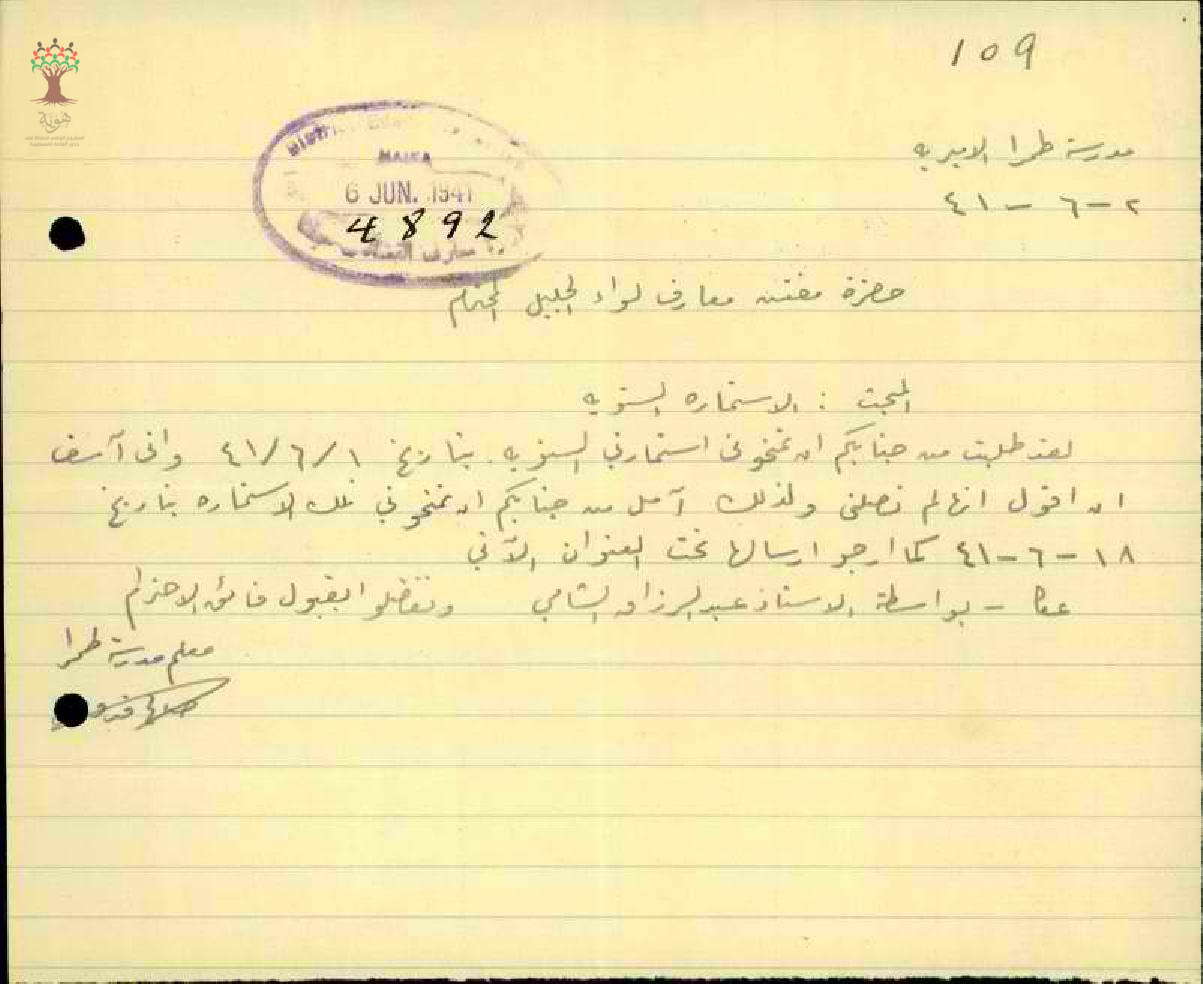 109
مدرسة طمرا الاميريه
٢-٦-٤١
District
HAIFA
6 JUN. 1941
4892
حضرة مفتش معارف لواء الجليل المحترم
المبحث : الاستماره السنويه
لقد طلبت من جنابكم ان تمنحوني استمارتي السنويه بتاريخ ٤١/٦/١ واني آسف
ان اقول انها لم تصلني ولذلك آمل من جنابكم ان تمنحوني تلك الاستماره بتاريخ
١٨-٦-٤١ كما ارجو ارسالها تحت العنوان الآتي
عكا - بواسطة الاستاذ عبد الرزاق الشامي وتفضلوا بقبول فائق الاحترام
معلم مدرسة طمرا
هوية